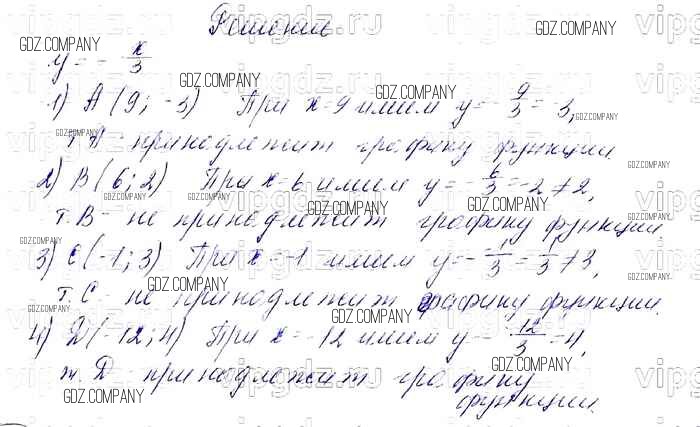 Решение
y = - x/3
1) A (9; -3) При x=9 имеем y = - 9/3 = -3,
т. A - принадлежит графику функции.
2) B (6; 2) При x=6 имеем y = - 6/3 = -2 ≠ 2,
т. B - не принадлежит графику функции.
3) C (-1; 3) При x=-1 имеем y = - -1/3 = 1/3 ≠ 3,
т. C - не принадлежит графику функции.
4) D (-12; 4) При x=-12 имеем y = - -12/3 = 4,
т. D - принадлежит графику
функции.
GDZ.COMPANY
vipgdz.ru